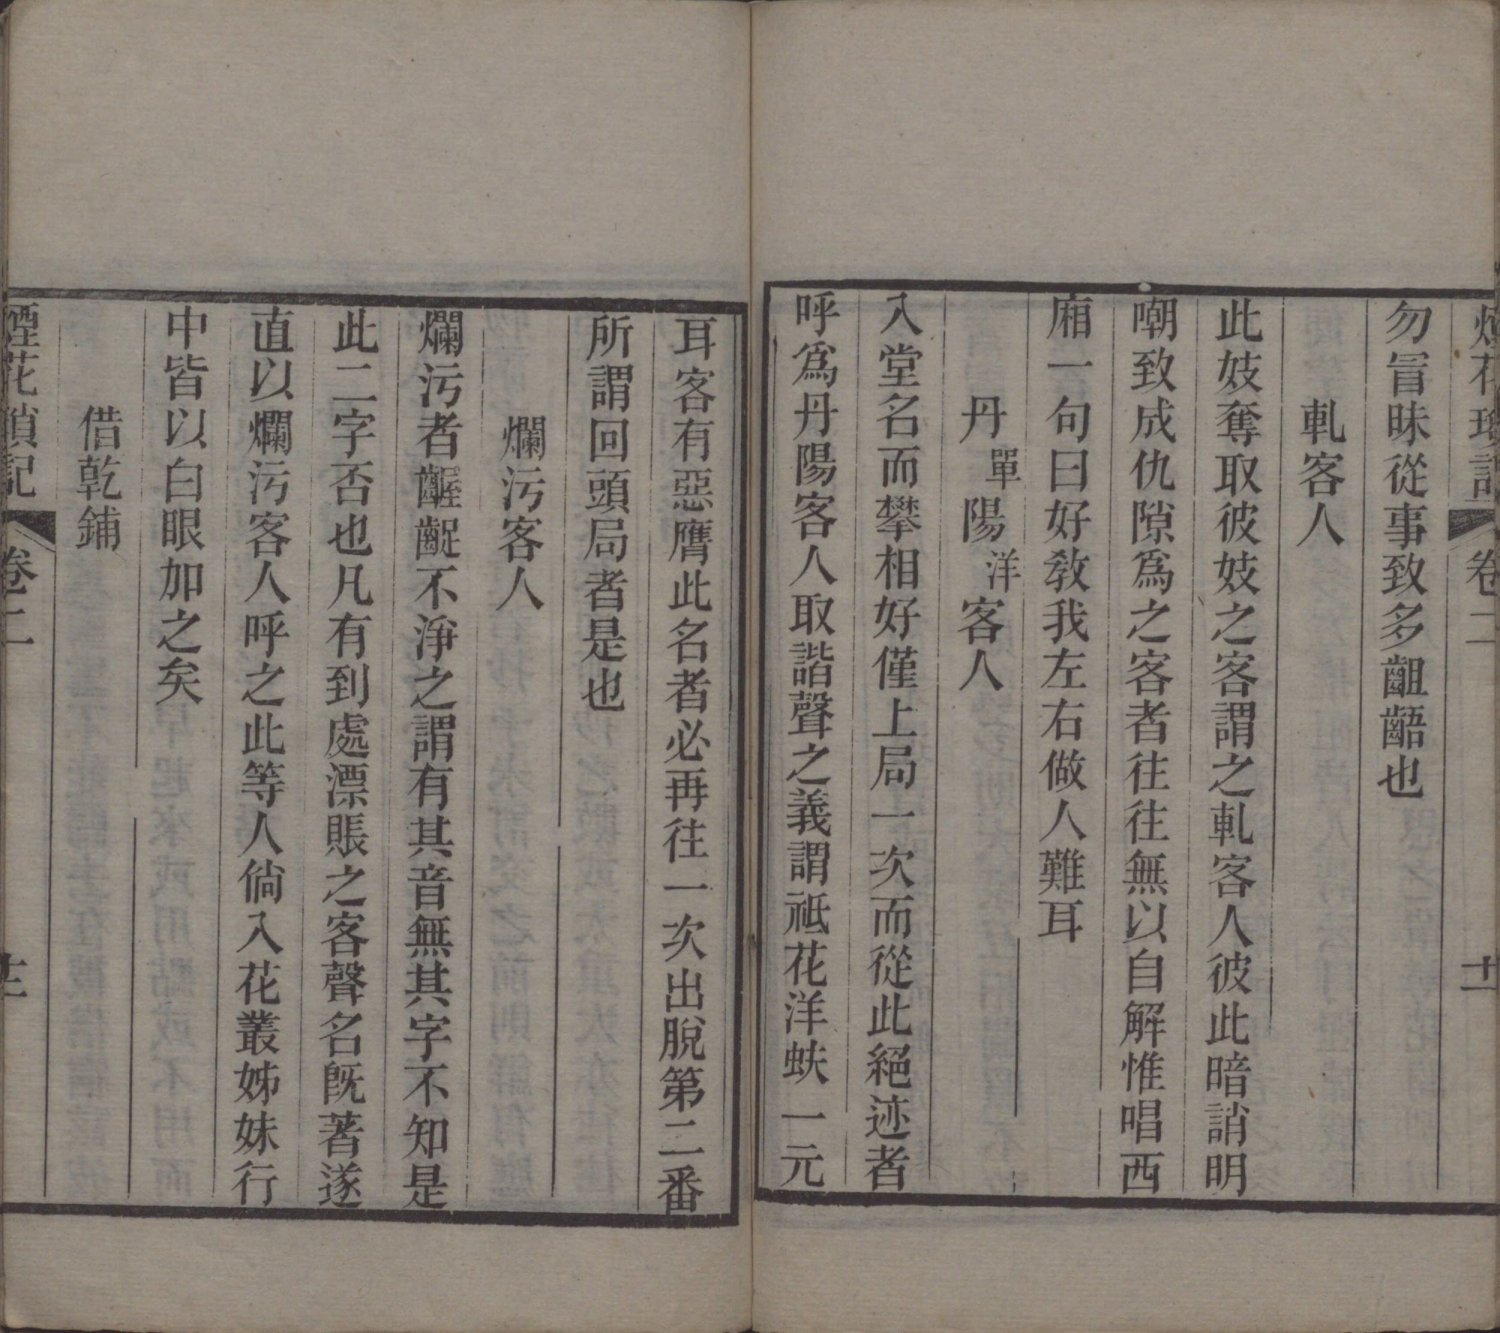 煙花瑣記 卷二 十二
勿冒昧從事致多齟齬也
軋客人
此妓奪取彼妓之客謂之軋客人彼此暗誚明
嘲致成仇隙爲之客者往往無以自解惟唱西
廂一句曰好敎我左右做人難耳
丹單陽洋客人
入堂名而攀相好僅上局一次而從此絕迹者
呼爲丹陽客人取諧聲之義謂祗花洋蚨一元
耳客有惡膺此名者必再往一次出脫第二番
所謂回頭局者是也
爛污客人
爛污者齷齪不淨之謂有其音無其字不知是
此二字否也凡有到處漂賬之客聲名旣著遂
直以爛污客人呼之此等人倘入花叢姊妹行
中皆以白眼加之矣
借乾鋪
煙花瑣記 卷二